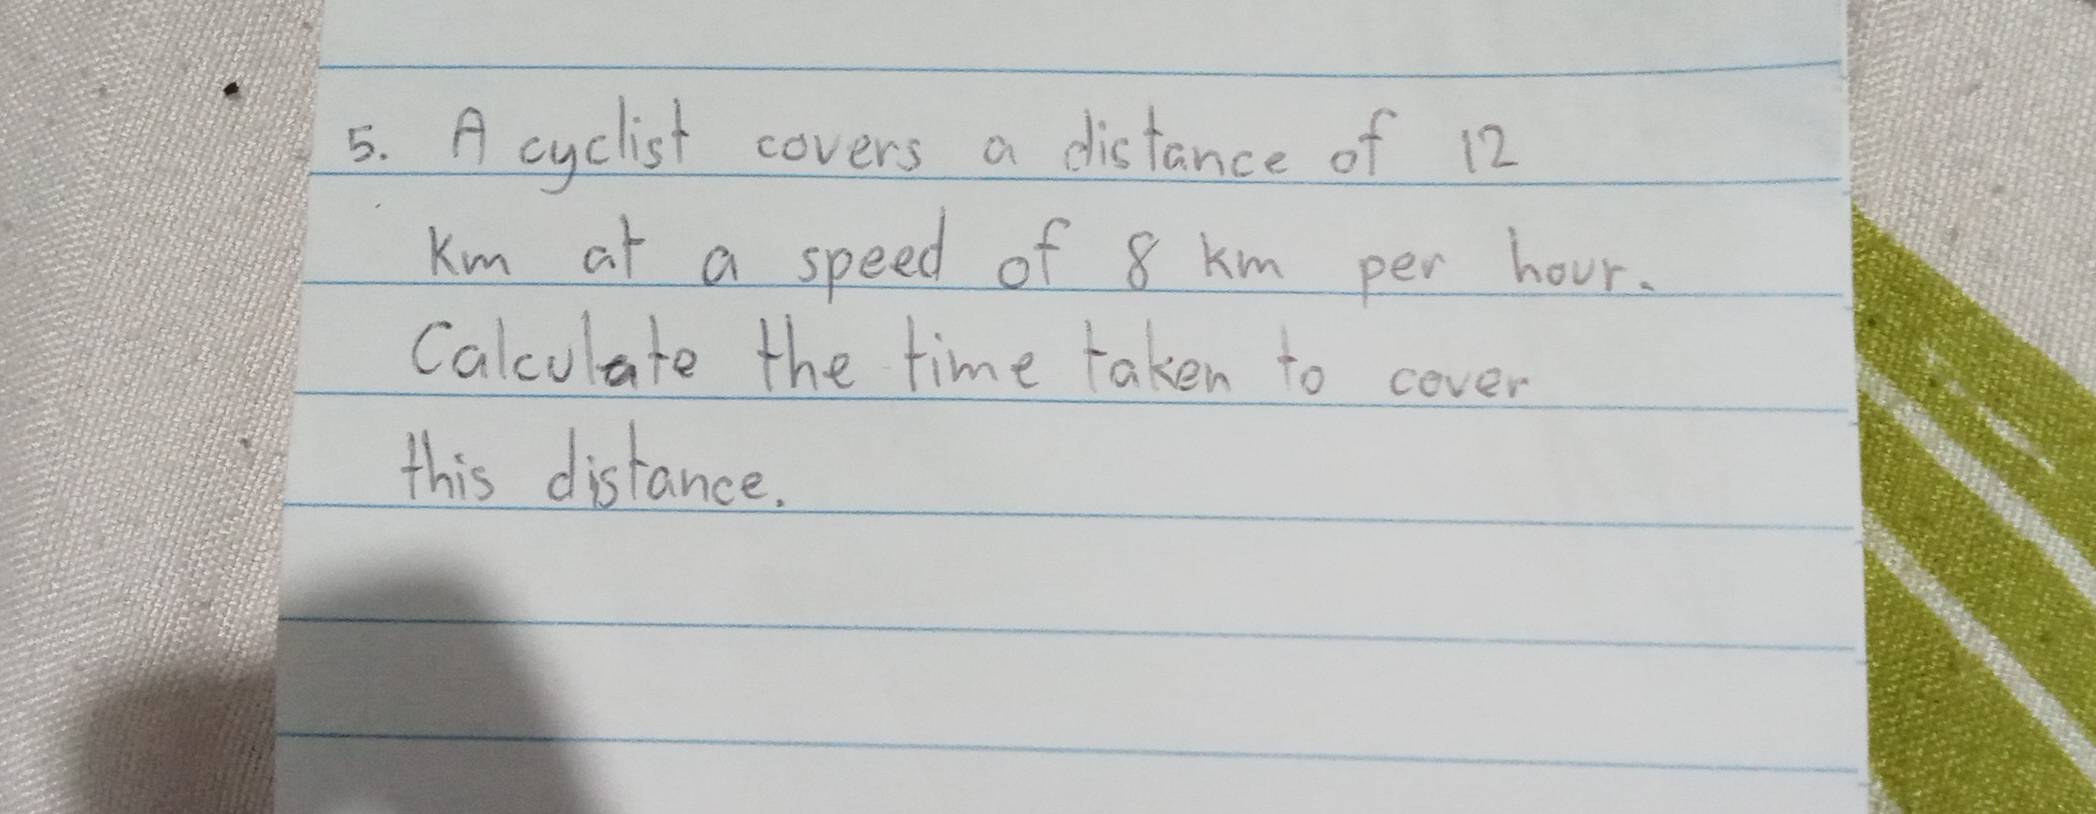 5. A cyclist covers a distance of 12
Km at a speed of 8 km per hour.
Calculate the time taken to cover
this distance.